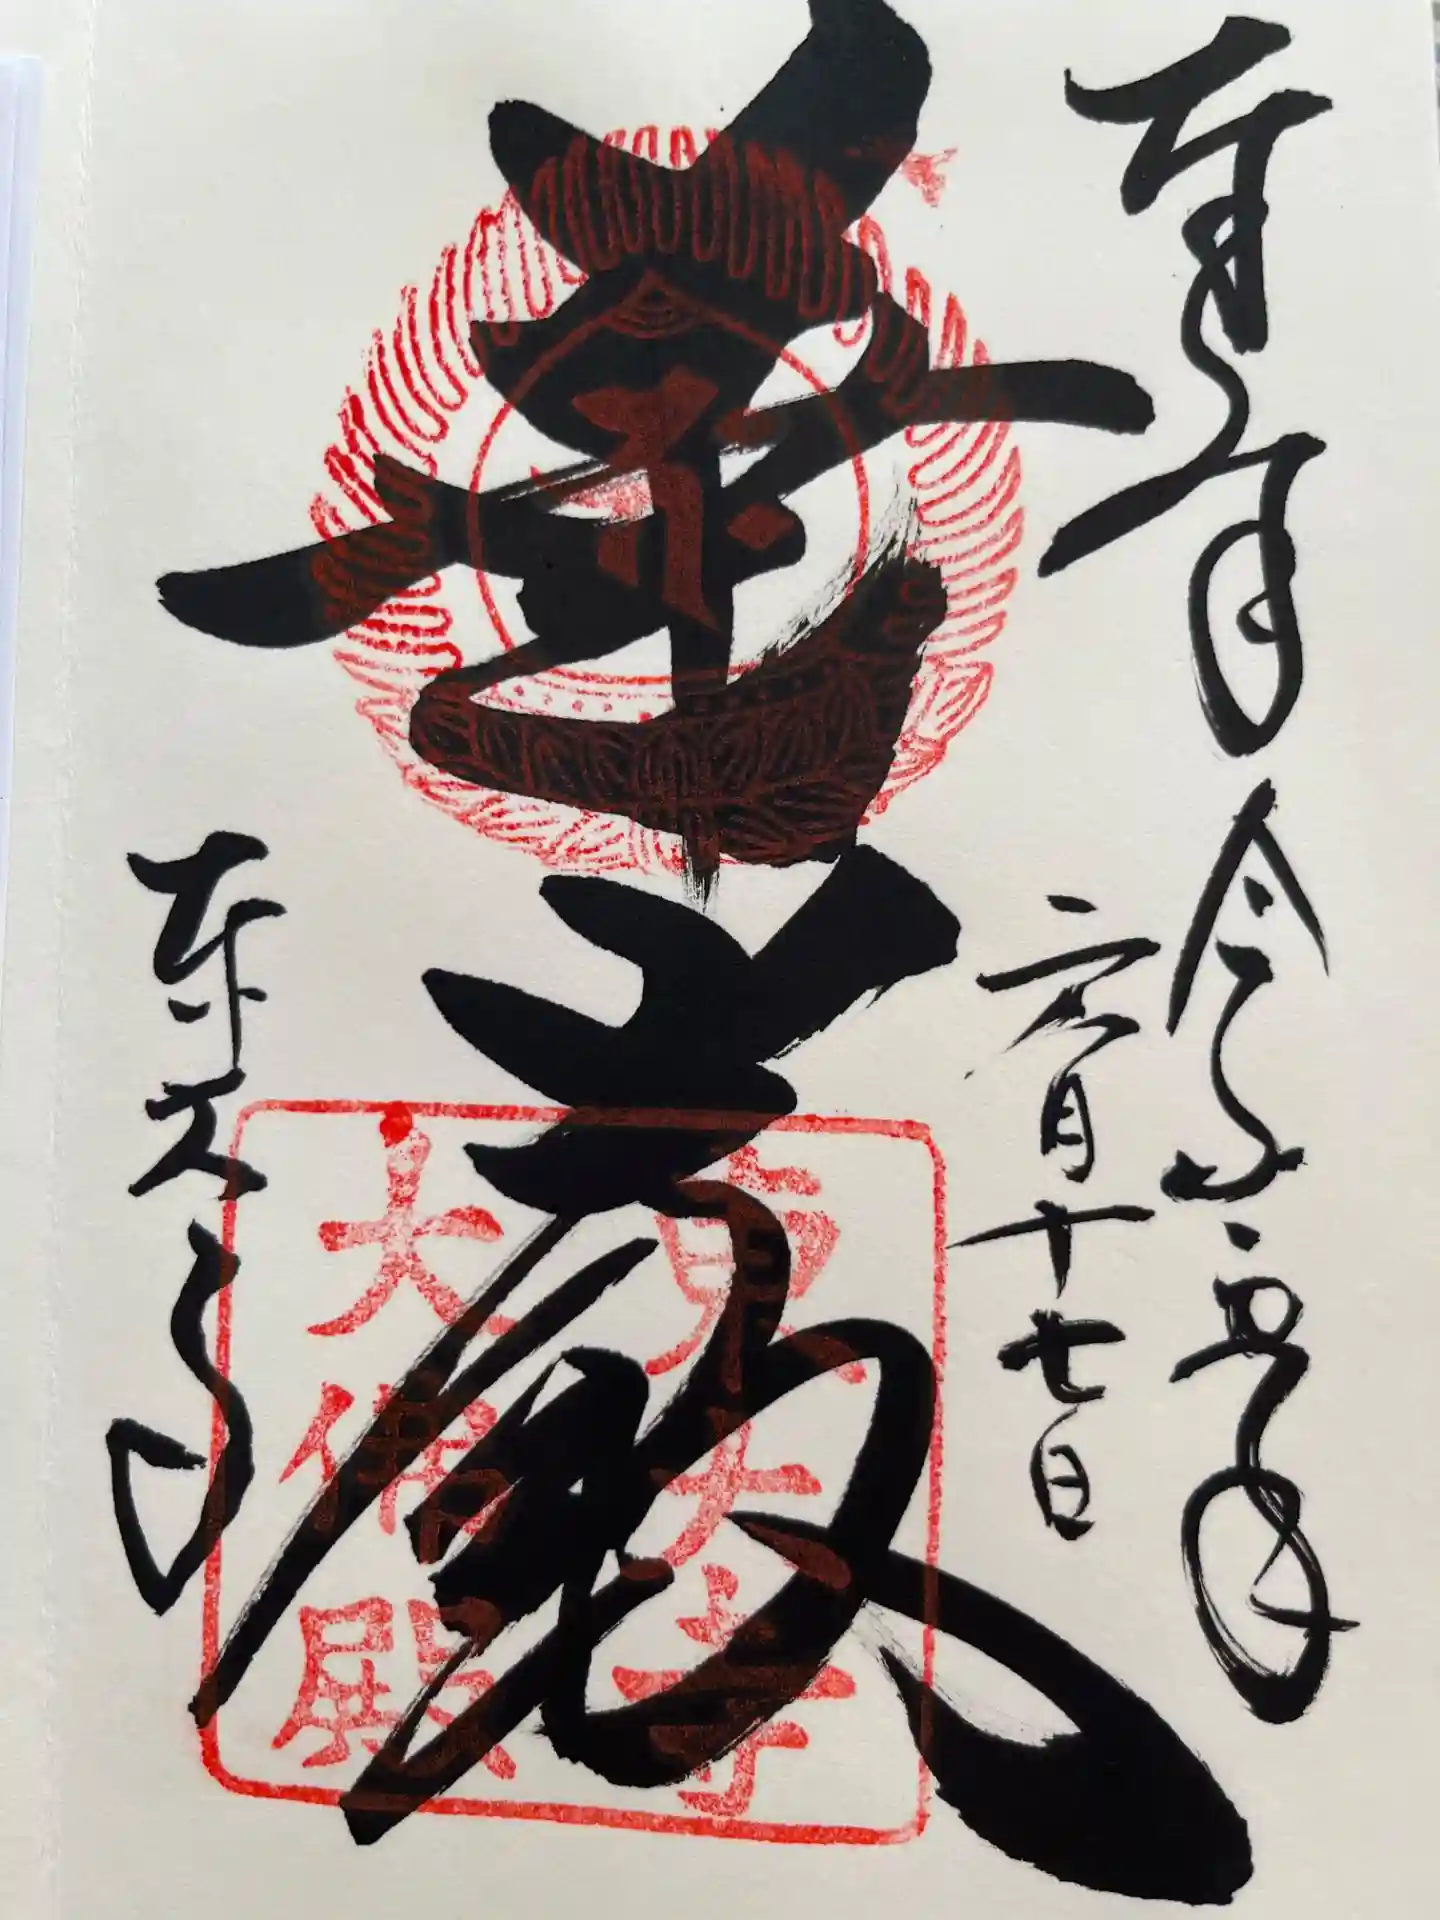 奉拝
令和
六月十七日
華嚴
東大寺
東大寺
大佛殿